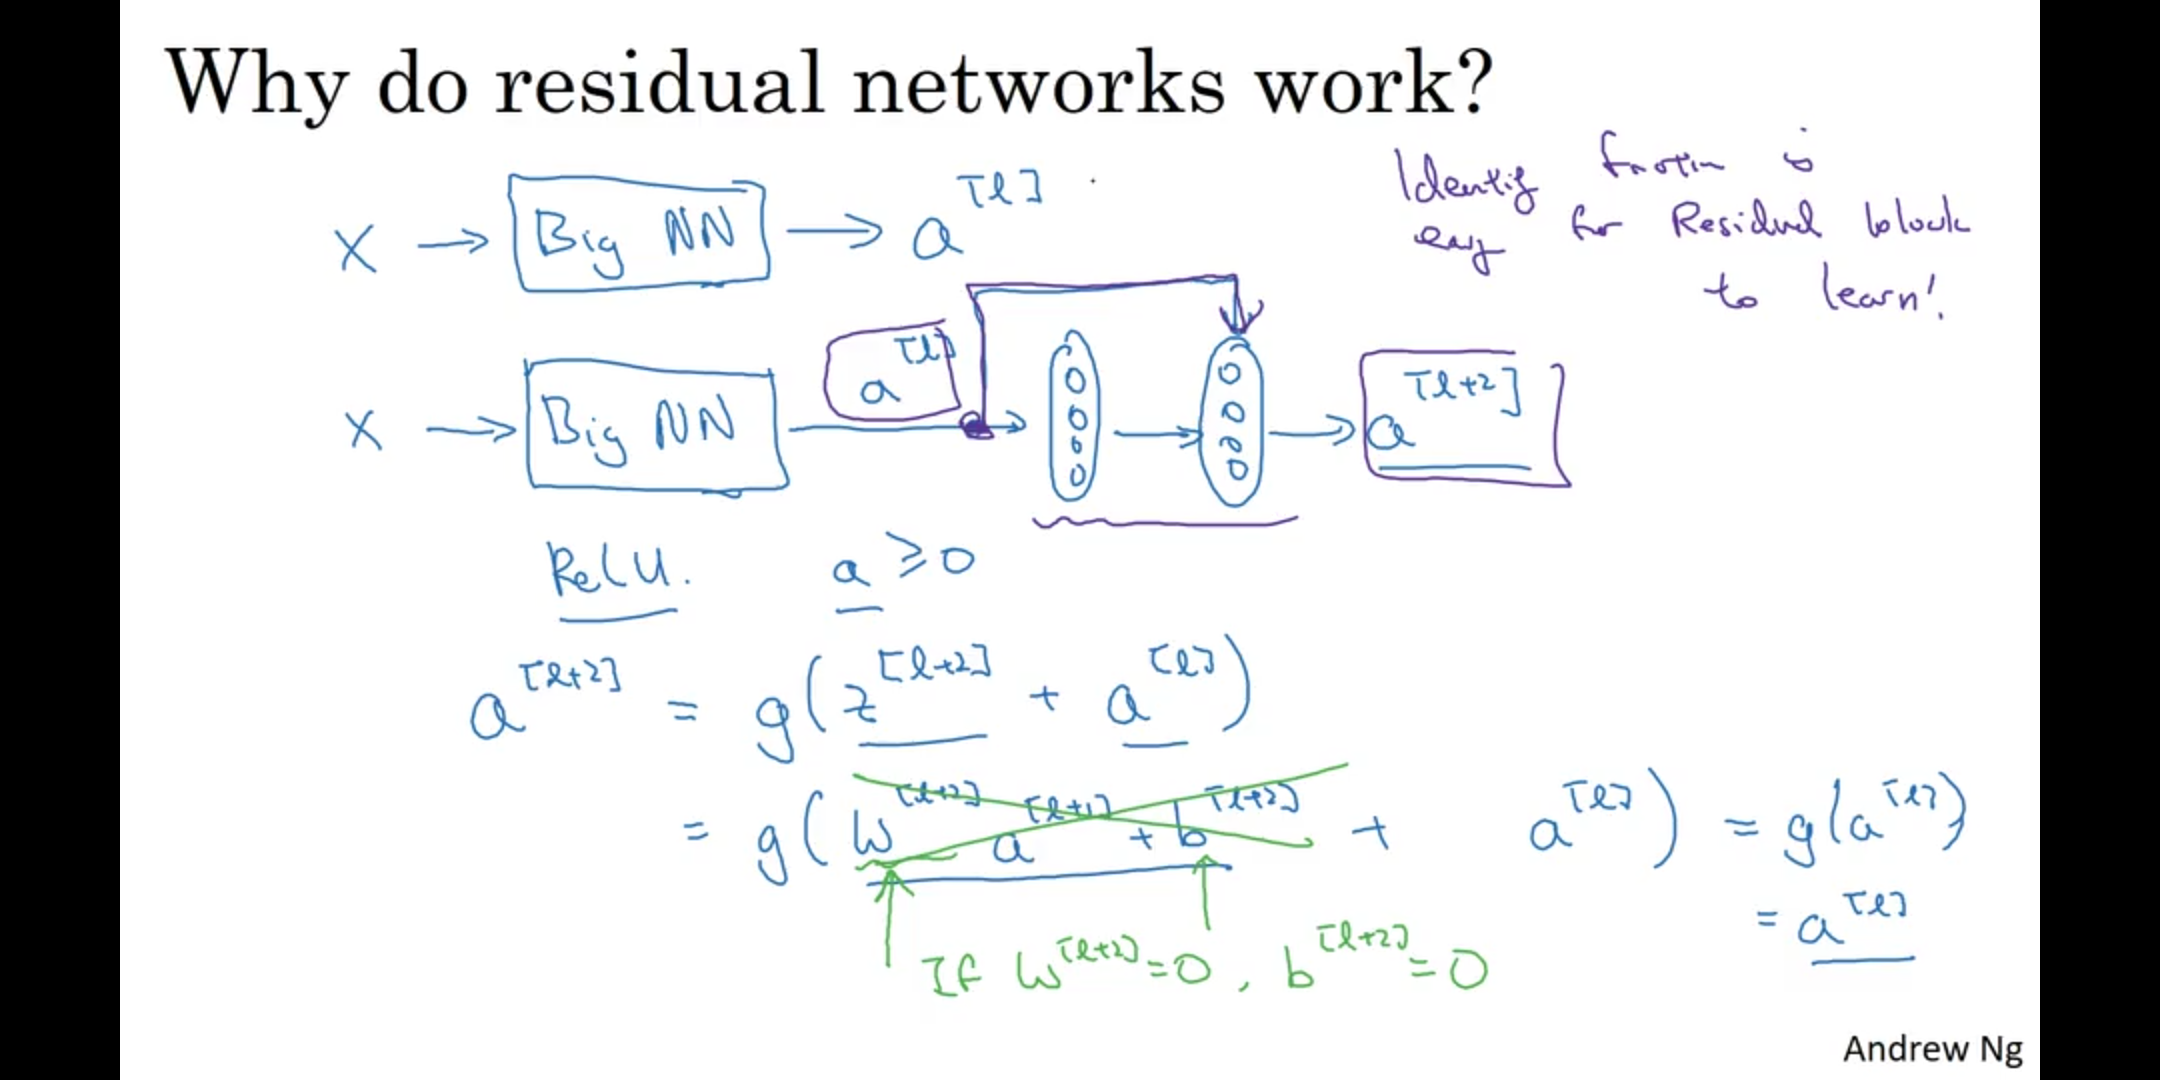 Why do residual networks work?
Identity function is
easy for Residual block
to learn!
X → Big NN → a[l]
X → Big NN → a[l] → → a[l+2]
ReLU. a ≥ 0
a[l+2] = g(z[l+2] + a[l])
= g(W[l+2] a[l+1] + b[l+2] + a[l]) = g(a[l])
= a[l]
If W[l+2]=0, b[l+2]=0
Andrew Ng